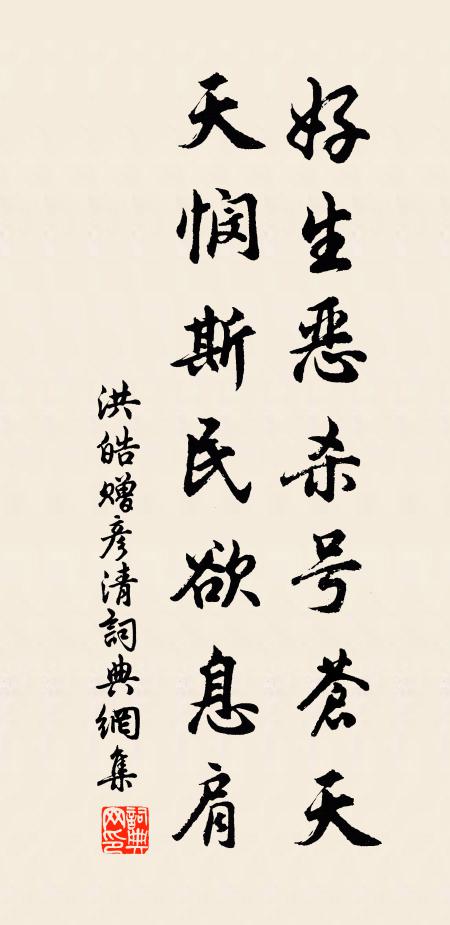 好生恶杀号苍天
天悯斯民欲息肩
洪皓赠彦清詞典網集
詞典网印